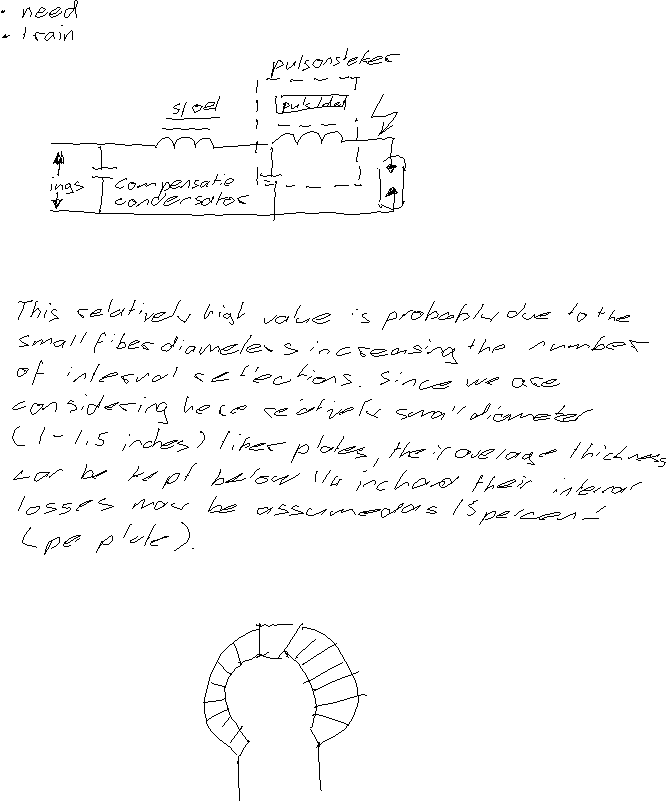 • need
• train
pulsonsteker
spoel
pulsldat
ings
compensatie
condensator
This relatively high value is probably due to the
small fiber diameters increasing the number
of internal reflections. Since we are
considering here relatively small diameter
(1-1.5 inches) fiber plates, their average thickness
can be kept below 1/4 inch and their internal
losses may be assumed as 15 percent
(pe plate).